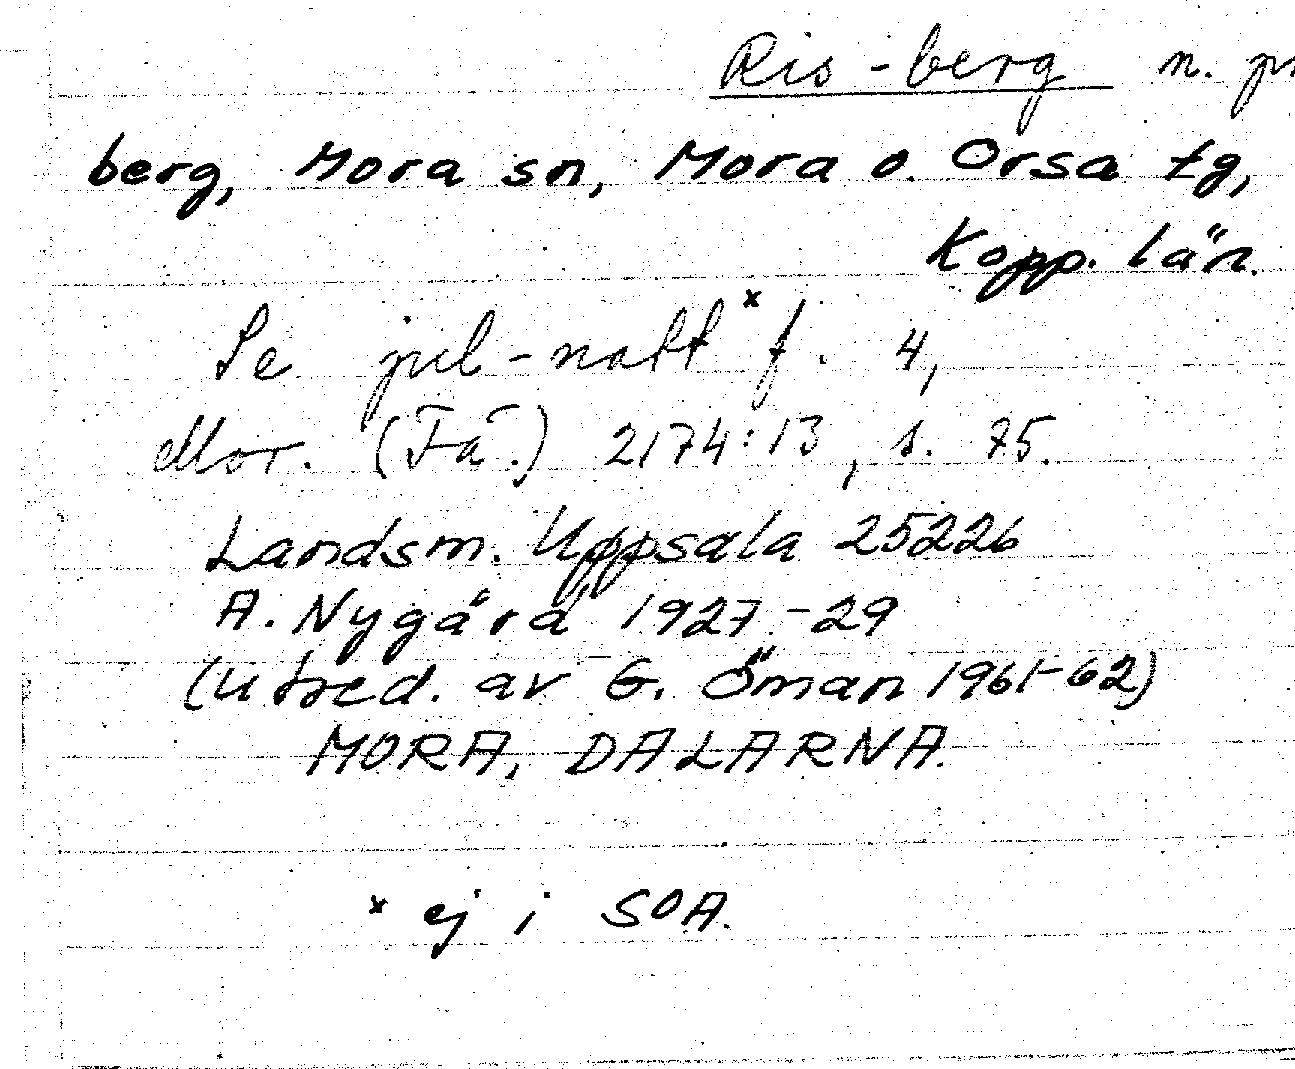 Ris-berg n. pr
berg, Mora sn, Mora o. Orsa tg,
Kopp. län.
Se jul-natt x f. 4,
Mor. (Fä.) 2174:13, s. 75.
Landsm. Uppsala 25226
A. Nygård 1927-29
(utred. av G. Öman 1961-62)
MORA, DALARNA.
x ej i SOA.